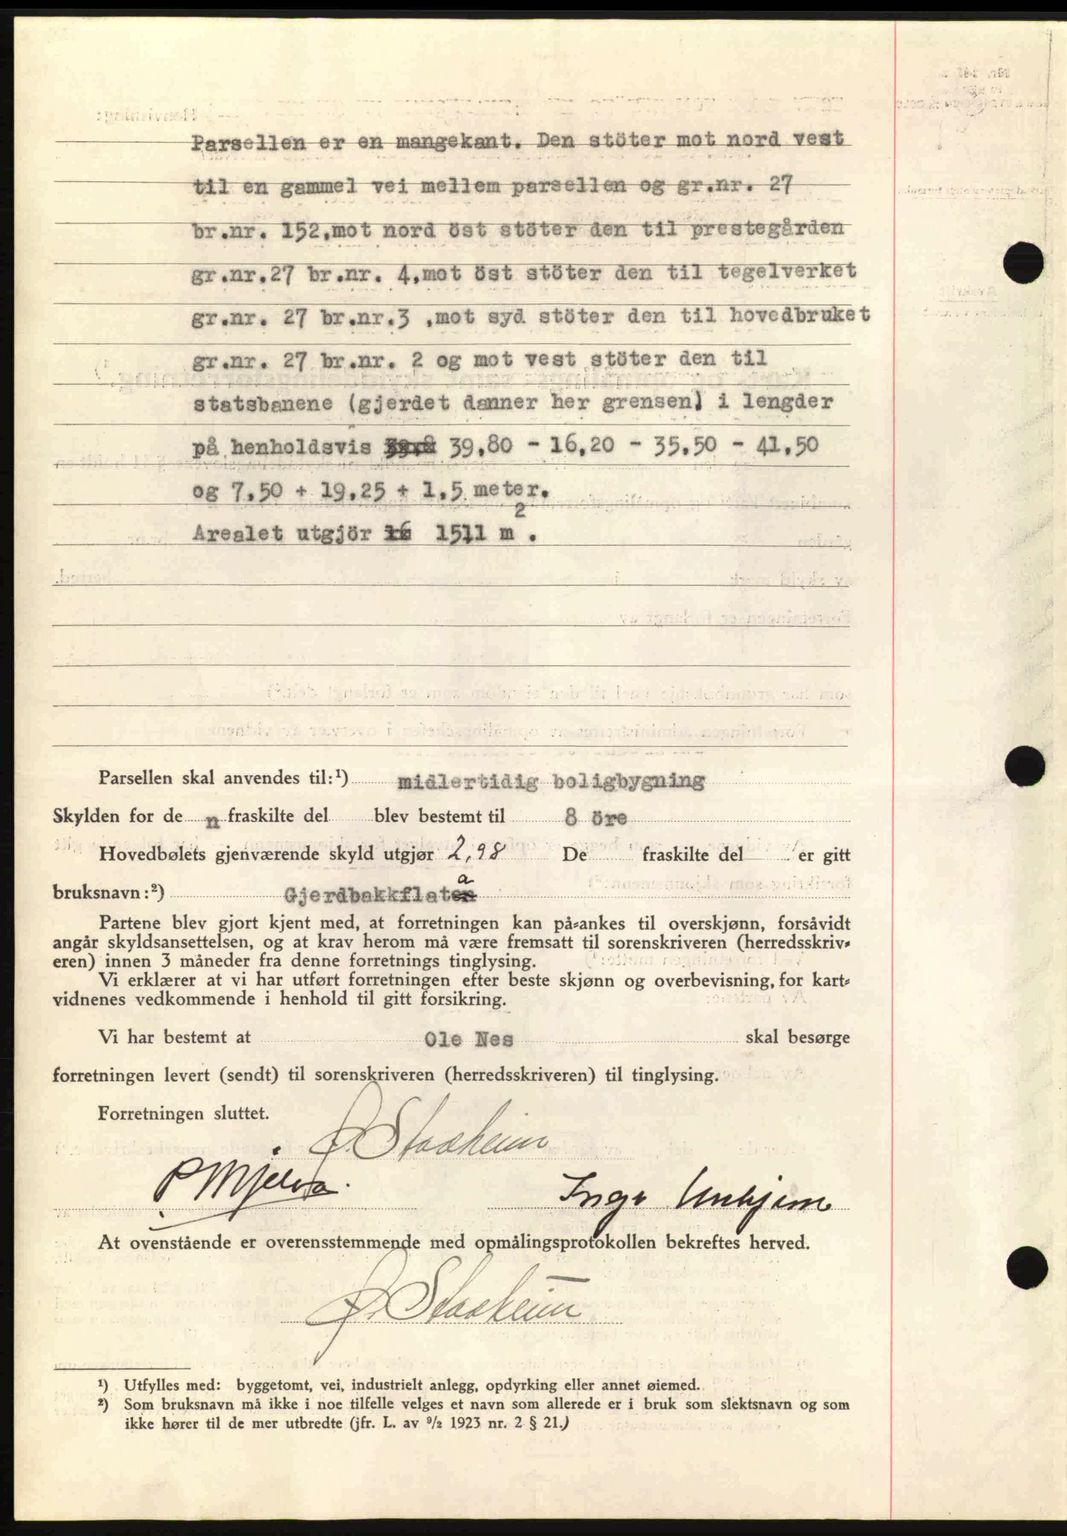 Parsellen er en mangekant. Den stöter mot nord vest
til en gammel vei mellem parsellen og gr.nr. 27
br.nr. 152,mot nord öst stöter den til prestegården
gr.nr.27 br.nr. 4,mot öst stöter den til tegelverket
gr.nr. 27 br.nr.3 ,mot syd stöter den til hovedbruket
gr.nr. 27 br.nr. 2 og mot vest stöter den til
statsbanene (gjerdet danner her grensen) i lengder
på henholdsvis 39,80 - 16,20 - 35,50 - 41,50
og 7,50 + 19,25 + 1,5 meter.
Arealet utgjör 16 1511 m².
Parsellen skal anvendes til:¹) midlertidig boligbygning
Skylden for de n fraskilte del blev bestemt til 8 öre
Hovedbølets gjenværende skyld utgjør 2,98 De fraskilte del er gitt
bruksnavn:²) Gjerdbakkflata
Partene blev gjort kjent med, at forretningen kan på=ankes til overskjønn, forsåvidt
angår skyldsansettelsen, og at krav herom må være fremsatt til sorenskriveren (herredsskriv=
eren) innen 3 måneder fra denne forretnings tinglysing.
Vi erklærer at vi har utført forretningen efter beste skjønn og overbevisning, for kart=
vidnenes vedkommende i henhold til gitt forsikring.
Vi har bestemt at Ole Nes skal besørge
forretningen levert (sendt) til sorenskriveren (herredsskriveren) til tinglysing.
Forretningen sluttet.
Staaheim
P Mjelva. Inga
At ovenstående er overensstemmende med opmålingsprotokollen bekreftes herved.
Staaheim
¹) Utfylles med: byggetomt, vei, industrielt anlegg, opdyrking eller annet øiemed.
²) Som bruksnavn må ikke i noe tilfelle velges et navn som allerede er i bruk som slektsnavn og som
ikke hører til de mer utbredte (jfr. L. av 9/2 1923 nr. 2 § 21.)